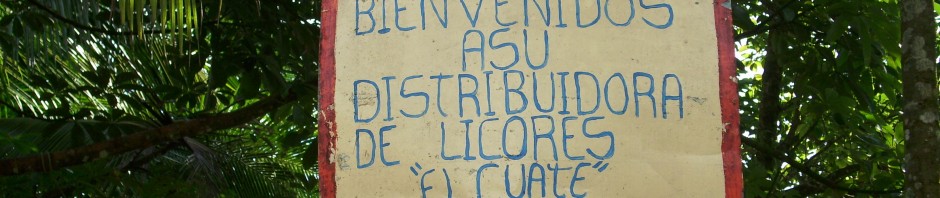 BIENVENIDOS
ASU
DISTRIBUIDORA
DE LICORES
"EL CUATE"